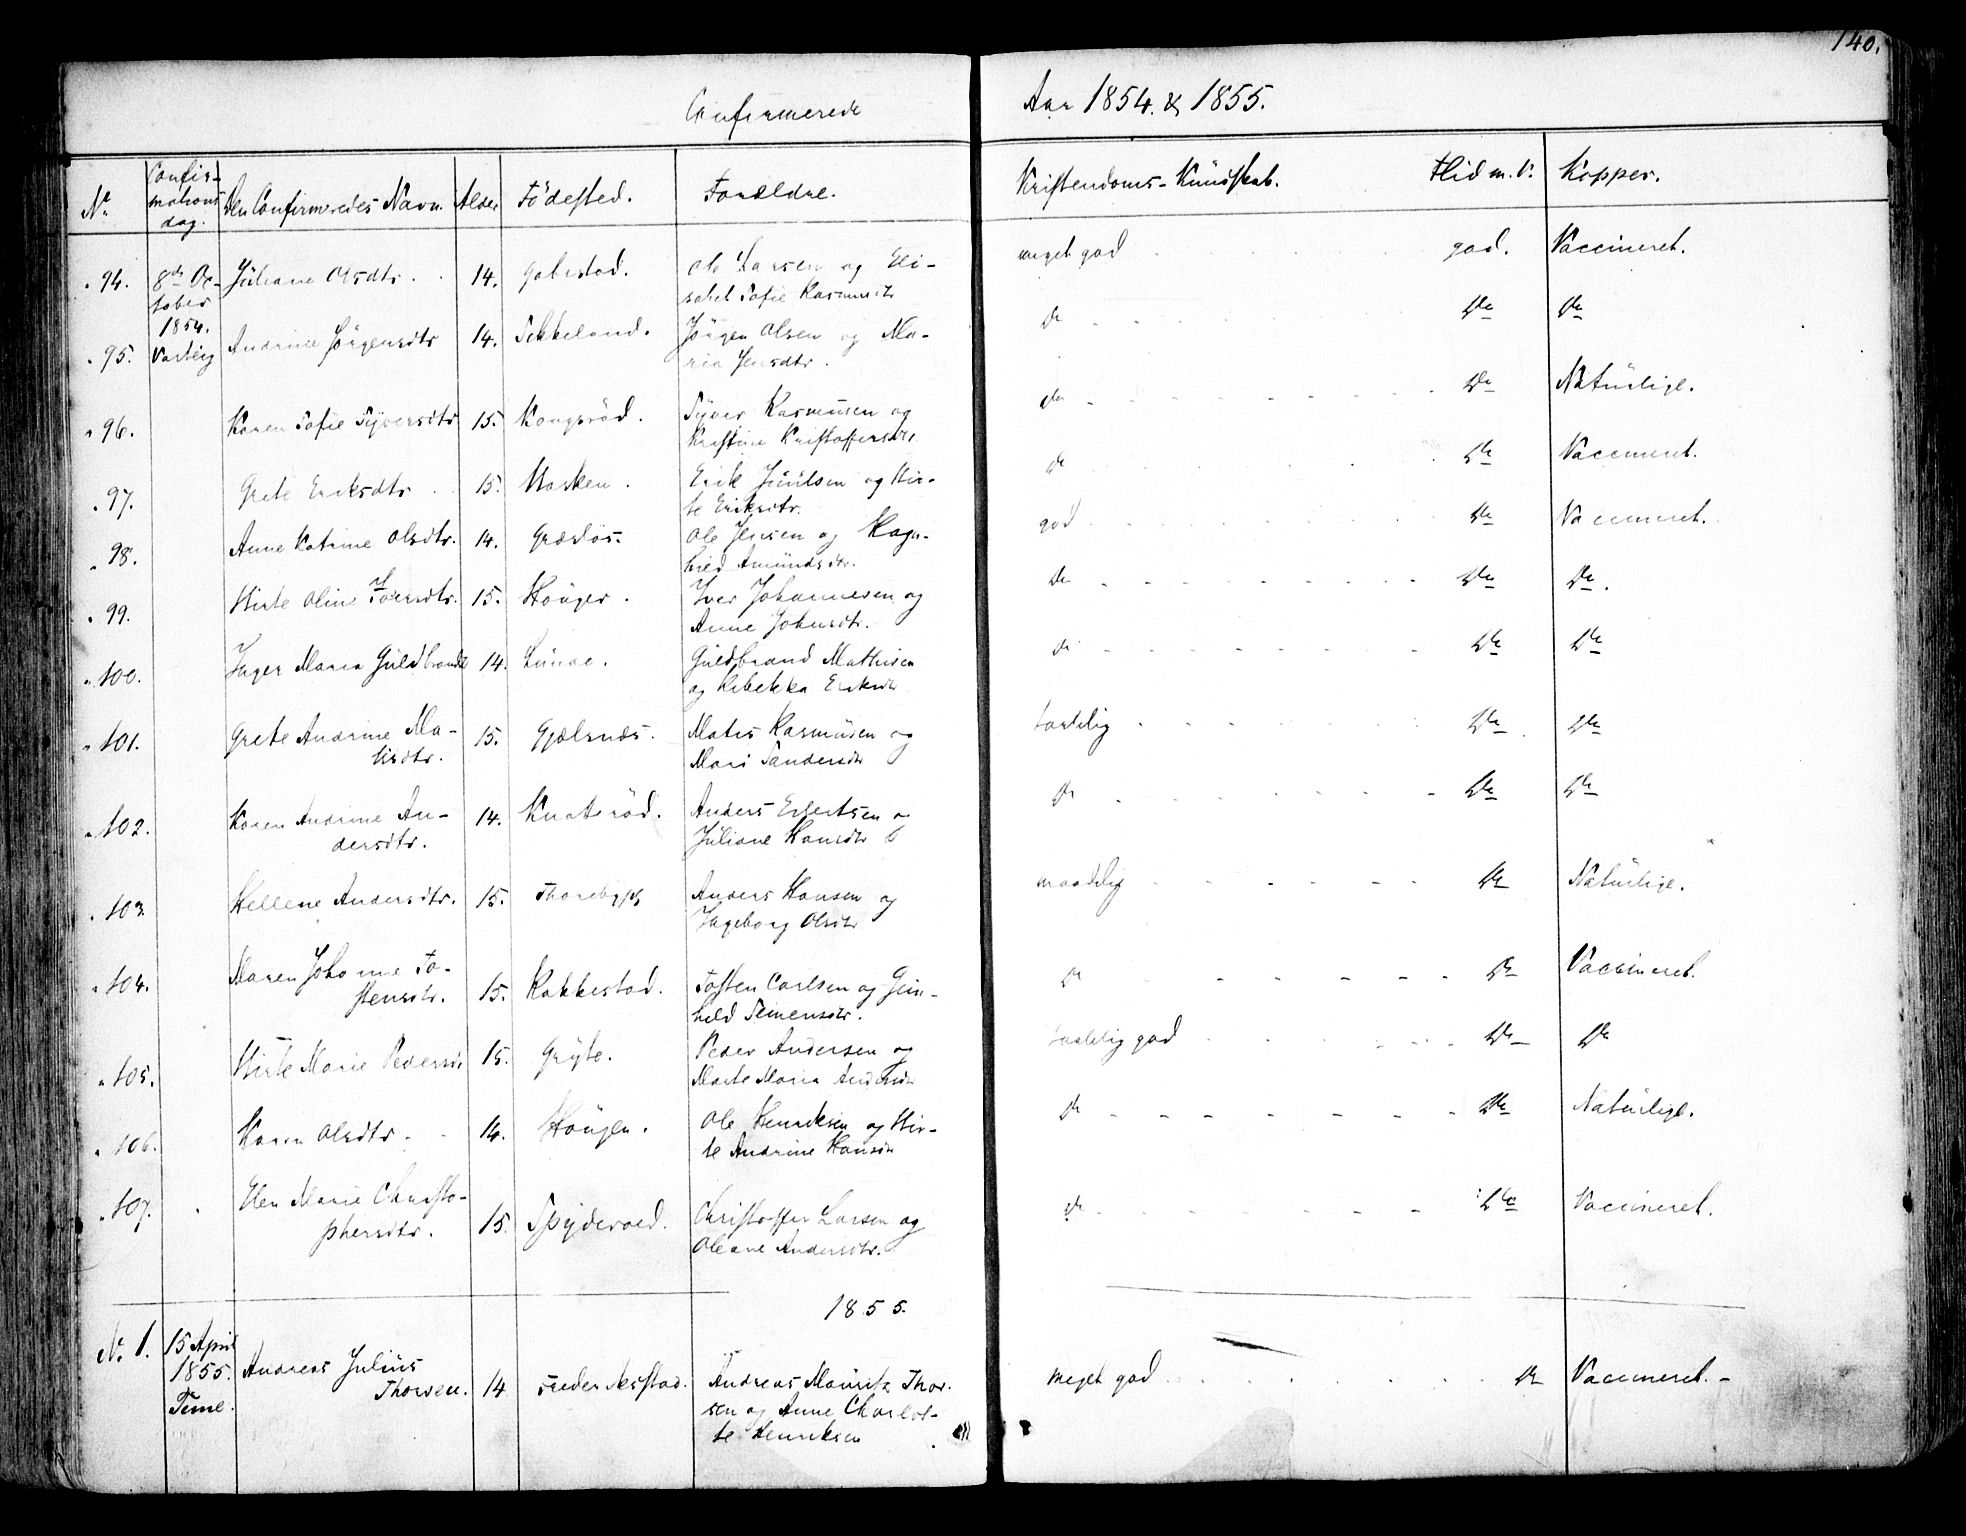 140.
Confirmerede Aar 1854. & 1855.
No. Confirmations dag. Den Confirmeredes Navn. Alder Födested. Forældre. Kristendoms-Kundskab. Flid m. V. Kopper.
94. 8de October 1854. Varteig Juliane Olsdtr. 14. Gabestad. Ole Larsen og Eli-
sabet Sofie Rasmusdtr meget god god. Vaccineret.
95. Andrine Jörgensdtr 14. Sekkelund. Jörgen Olsen og Ma-
ria Jensdtr. Do Do Do
96. Karen Sofie Syversdtr 15. Kongsröd. Syver Rasmusen og
Kristine Kristoffersdtr Do Do Naturlige.
97. Grete Eriksdtr 15. Hasken. Erik Juulsen og Hir-
te Eriksdtr. Do Do Vaccineret.
98. Anne Katrine Olsdtr. 14. Græslös. Ole Jensen og Ragn-
hild Amundsdtr. god Do Vaccineret.
99. Hirte Oline Iversdtr. 15. Houger. Iver Johannesen og
Anne Johnsdtr. Do Do Do.
100. Inger Maria Guldbrandd 14. Lunde. Guldbrand Mathisen
og Rebekka Eriksdtr Do Do Do
101. Grete Andrine Ma-
tisdtr. 15. Gjælsnæs. Matis Rasmusen og
Mari Sandersdtr taalelig Do Do
102. Karen Andrine An-
dersdtr. 14. Knateröd. Anders Evertsen og
Juliane Hansdtr Do Do Do
103. Hellene Andersdtr. 15. Anders Hansen og
Ingeborg Olsdtr maadelig Do Naturlige.
104. Maren Johanne To-
stensdtr. 15. Rakkestad. Tosten Carlsen og Gun-
hild Simensdtr. Do Do Vaccineret.
105. Hirte Marie Pedersdtr 15. Gryte. Peder Andersen og
Marte Maria Andersdtr taalelig god Do Do
106. Karen Olsdtr. 14. Hougen. Ole Henriksen og Hir-
te Andrine Hansdtr Do Do Naturlige.
107. Elen Marie Christo-
phersdtr. 15. Spydevold. Christoffer Larsen og
Oleane Andersdtr. Do Do Vaccineret.
1855.
No. 1. 15 April 1855. Tune. Andreas Julius
Thorsen. 14 Frederikstad. Andreas Mauritz Thor-
sen og Anne Charlot-
te Henriksen meget god Do Vaccineret.